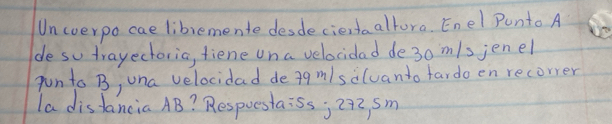 Un cuerpo cae libremente desde cierta altura. En el Punto A
de su trayectoria, tiene una velocidad de 30 m/s; en el
punto B, una velocidad de 79 m/s ¿Cuanto tardo en recorrer
la distancia AB? Respuesta: 5s ; 272,5m